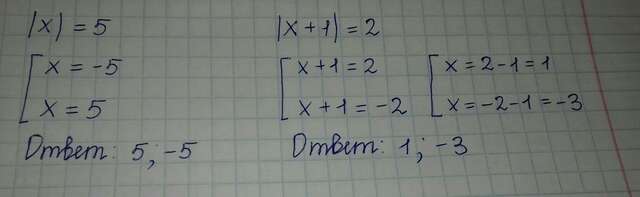 |x| = 5
x = -5
x = 5
Ответ: 5; -5
|x + 1| = 2
x + 1 = 2
x + 1 = -2
x = 2 - 1 = 1
x = -2 - 1 = -3
Ответ: 1; -3